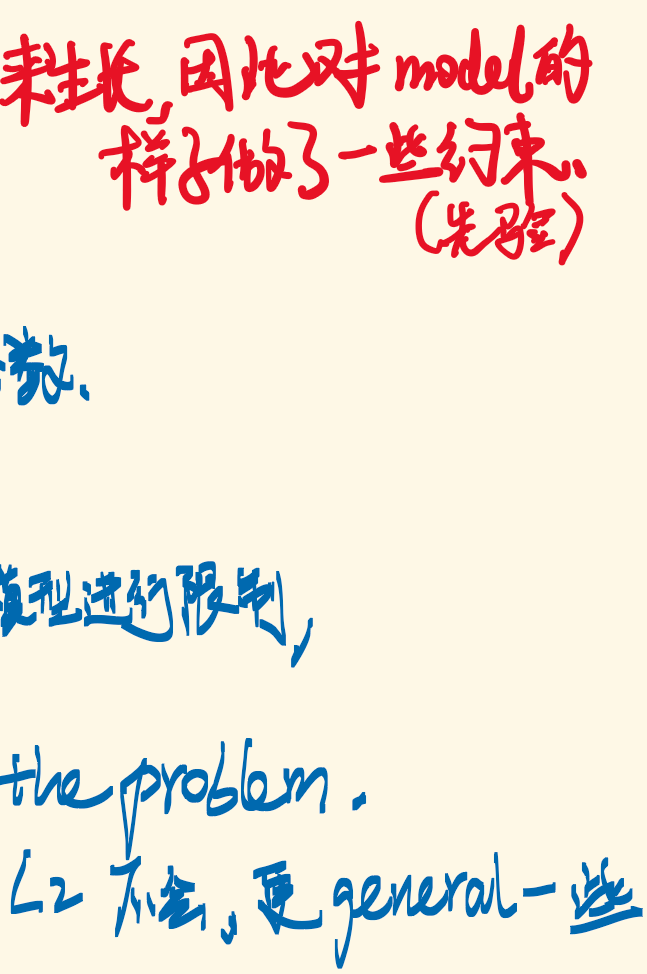 来生长,因此对 model 的
样子做了一些约束.
(先验)
数.
模型进行限制,
the problem.
L2 不会,更 general 一些